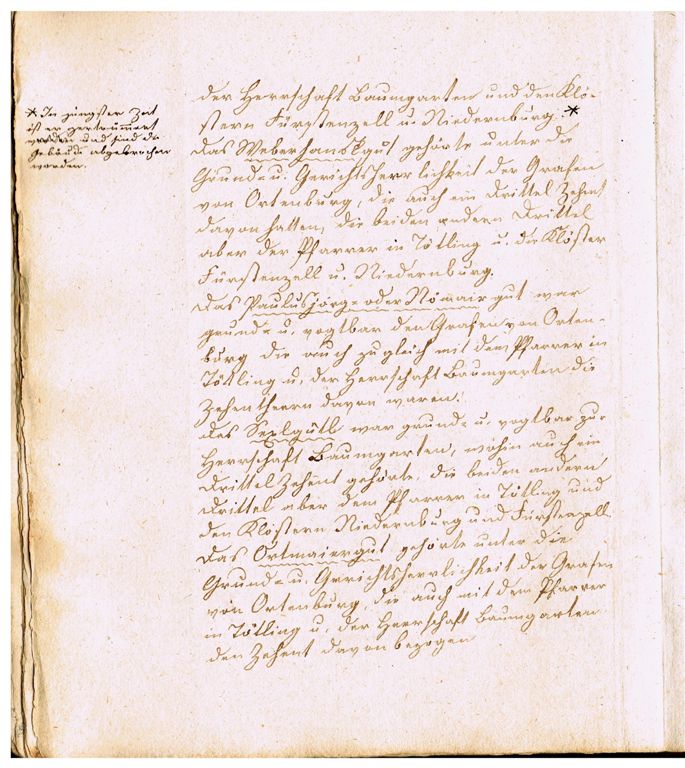 * In jüngster Zeit
ist er zertrümmert
worden und sind die
Gebäude abgebrochen
worden.
der Herrschaft Baumgarten und den Klö-
stern Fürstenzell u. Niedernburg. *
Das Weberhanslgut gehörte unter die
Grund= u. Gerichtsherrlichkeit der Grafen
von Ortenburg, die auch ein Drittel Zehent
davon hatten, die beiden andern Drittel
aber der Pfarrer in Tötling u. die Klöster
Fürstenzell u. Niedernburg.
Das Paulusjörg= oder Nömair gut war
grund= u. vogtbar den Grafen von Orten-
burg die auch zugleich mit dem Pfarrer in
Tötling u. der Herrschaft Baumgarten die
Zehentherrn davon waren.
Das Sexlgütl war grund= u. vogtbar zur
Herrschaft Baumgarten, wohin auch ein
Drittel Zehent gehörte, die beiden andern
Drittel aber dem Pfarrer in Tötling und
den Klöstern Niedernburg und Fürstenzell
Das Ortmaiergut gehörte unter die
Grund= u. Gerichtsherrlichkeit der Grafen
von Ortenburg, die auch mit dem Pfarrer
in Tötling u. der Herrschaft Baumgarten
den Zehent davon bezogen